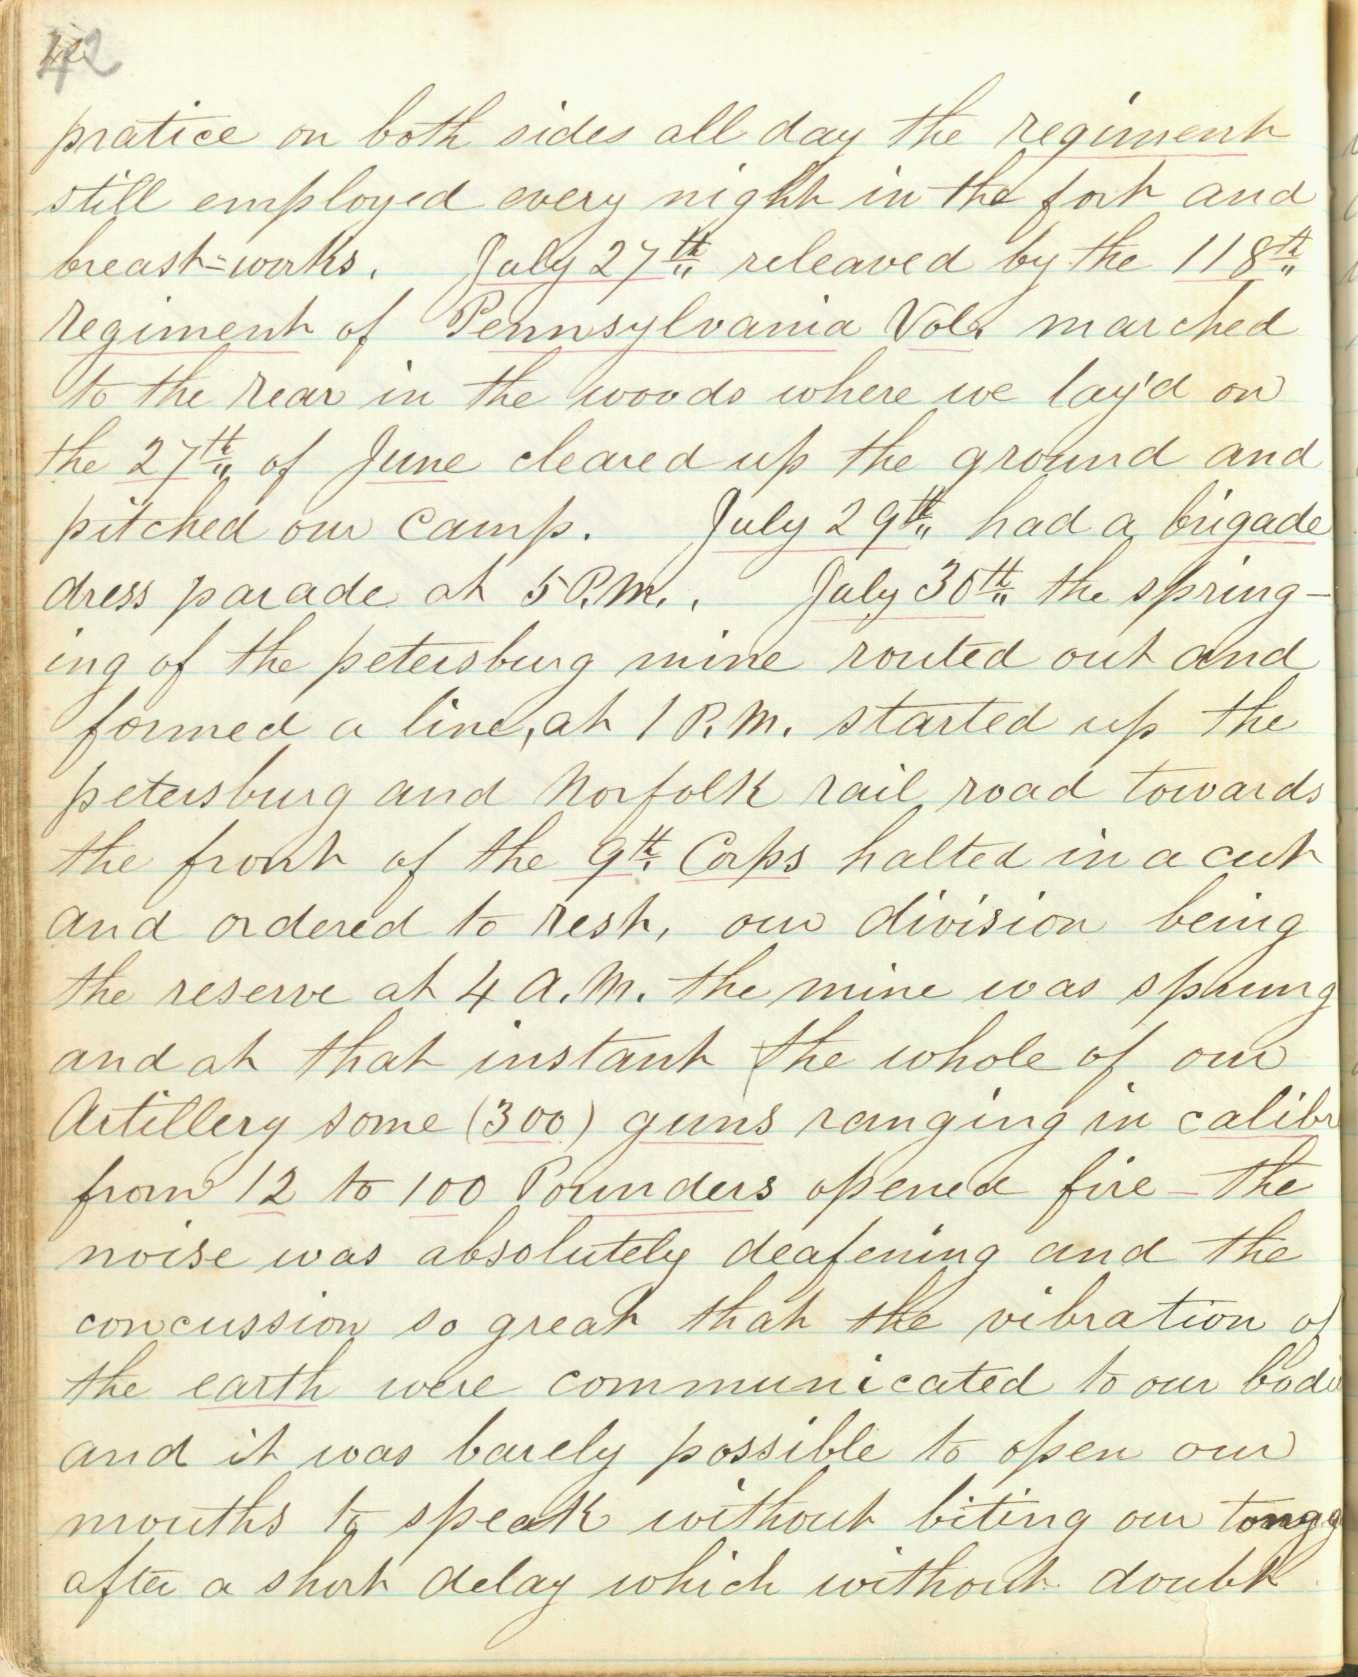 42
pratice on both sides all day the regiment
still employed every night in the fort and
breast=works. July 27th releaved by the 118th
regiment of Pennsylvania Vols. marched
to the rear in the woods where we lay'd on
the 27th of June cleared up the ground and
pitched our camp. July 29th had a brigade
dress parade at 5 P.M.. July 30th the spring-
ing of the petersburg mine routed out and
formed a line, at 1 P.M. started up the
petersburg and Norfolk rail road towards
the front of the 9th Corps halted in a cut
and ordered to rest, our division being
the reserve at 4 A.M. the mine was sprung
and at that instant the whole of our
Artillery some (300) guns ranging in calibr
from 12 to 100 Pounders opened fire - the
noise was absolutely deafening and the
concussion so great that the vibration of
the earth were communicated to our bodi
and it was barely possible to open our
mouths to speak without biting our
after a short delay which without doubt